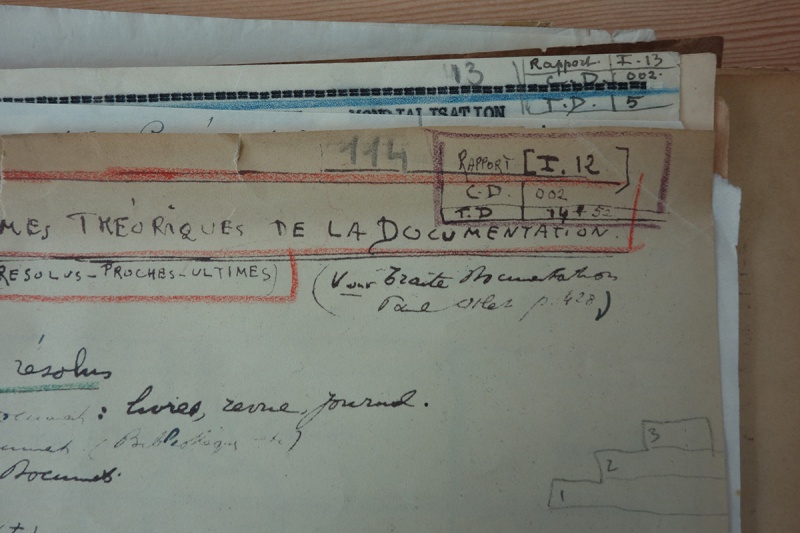 13
Rapport. I.13
C.D. 002.
MONDIALISATION
T.D. 5
114
RAPPORT [I.12]
C.D. 002
T.D
MES THÉORIQUES DE LA DOCUMENTATION.
RESOLUS-PROCHES-ULTIMES)
(Voir Traité Documentation
Paul Otlet p. 428)
résolus
: livres, revue, journal.
(Bibliothèque
Documents.
3
2
1